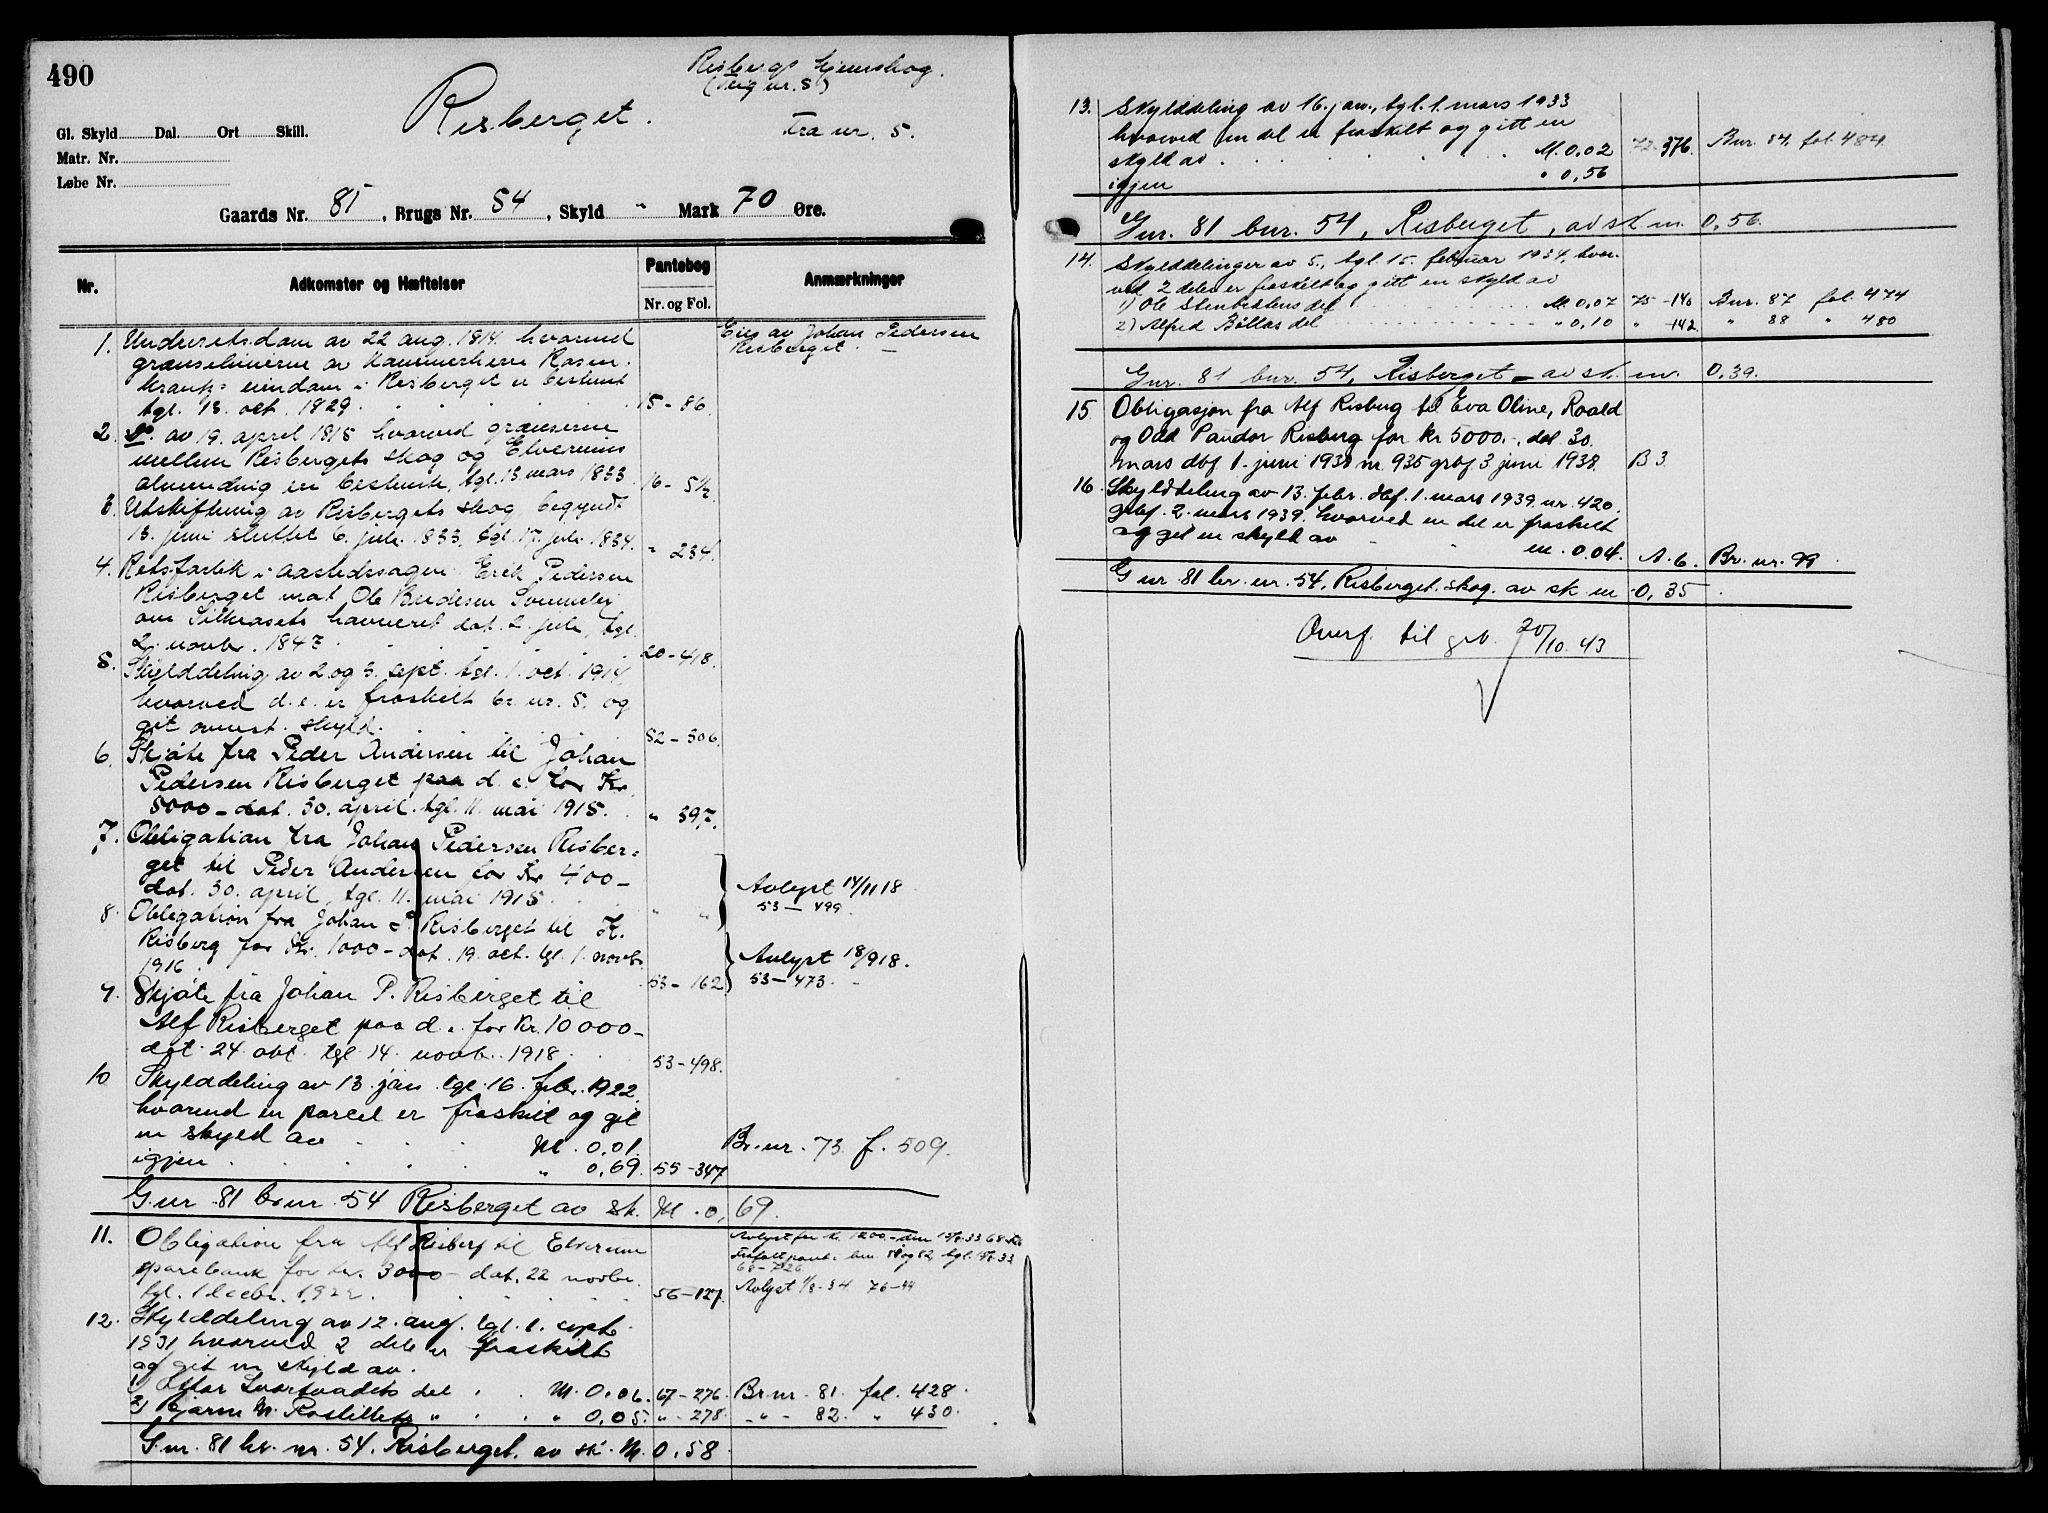 490
Risbergs hjemskog.
(Teig nr. 8)
Risberget.
fra nr. 5.
Gl. Skyld Dal. Ort Skill.
Matr. Nr.
Løbe Nr.
Gaards Nr. 81, Brugs Nr. 54, Skyld " Mark 70 Øre.
Nr. Adkomster og Hæftelser Pantebog Anmærkninger
Nr. og Fol.
1. Underretsdom av 22 aug. 1814 hvorved Eies av Johan Pedersen
grænselinierne av Kammerherre Rosen- Risberget. —
krantz's eiendom i Risberget er bestemt
tgl. 13. oct. 1829. 15 - 86.
2. Do. av 19. april 1815 hvorved grænserne
mellem Risbergets skog og Elverums
almending er bestemt, tgl. 13 mars 1833 16 - 5 1/2
3. Utskiftning av Risbergets skog, begyndt
13. juni sluttet 6. juli 1833. tgl. 17. juli 1834. " 234.
4. Retsforlik i aastedssagen Erik Pedersen
Risberget mot Ole
om havneret dat. 2. juli, tgl.
2. novbr. 1847. 20 - 418.
5. Skylddeling av 2 og 3. sept. tgl. 1. oct. 1914,
hvorved d. e. er fraskilt br. nr. 5. og
git ovenst. skyld. 52 - 306.
6. Skjøte fra Peder Andersen til Johan
Pedersen Risberget paa d. e. for Kr.
5000 - dat. 30. april. tgl. 11. mai 1915. " 397.
7. Obligation fra Johan Pedersen Risber-
get til Peder Andersen for Kr 400 -
dat. 30. april, tgl. 11. mai 1915. " " Avlyst 14/11 18
53 - 499.
8. Obligation fra Johan P. Risberget til K.
Risberg for Kr. 1000 - dat. 19. oct. tgl. 1. novbr. Avlyst 18/9 18.
1916. 53 - 162 53 - 473. -
9. Skjøte fra Johan P. Risberget til
Alf Risberget paa d. e. for Kr. 10 000 -
dat. 24. okt. tgl. 14. novb. 1918. 53 - 498.
10 Skylddeling av 13. jan. tgl. 16. febr. 1922.
hvorved en parcel er fraskilt og git
en skyld av M. 0,01. Br. nr. 73. f. 509.
igjen " 0,69. 55 - 347
G. nr. 81 br. nr. 54 Risberget av sk. M. 0,69.
11. Obligation fra Alf Risberg til Elverum Avlyst for kr. 1200.-
sparebank for kr. 3000 - dat. 22 novbr.
tgl. 1 decbr. 1922. 56 - 127. Avlyst 34 76 - 44
12. Skylddeling av 12. aug. tgl. 1. sept.
1931, hvorved 2 dele er fraskilt
og git en skyld av.
1) del M. 0,06. 67 - 276. Br. nr. 81. fol. 428.
2) Bjarne M. " " 0,05. " - 278. - " - 82. " 430.
G. nr. 81 br. nr. 54. Risberget. av sk. M. 0,58.
13. Skylddeling av 16. jan., tgl. 1. mars 1933
hvorved en del er fraskilt og gitt en
skyld av M. 0,02 72. 376. Bnr. 84. fol. 484.
igjen " 0,56
Gnr. 81 bnr. 54, Risberget, av sk. m. 0,56.
14. Skylddelinger av 5., tgl. 15. februar 1934, hvor-
ved 2 deler er fraskilt og gitt en skyld av
1) Ole Stenbestens del M. 0,07 75 - 140 Bnr. 87 fol. 474
2) Alfred Bøllas del " 0,10 " - 142. " 88 " 480
Gnr. 81 bnr. 54, Risberget - av sk. m. 0,39.
15 Obligasjon fra Alf Risberg til Eva Oline, Roald
og Odd Pandor Risberg for kr 5000.-, dat 30.
mars dbf 1. juni 1938 nr. 935 grbf. 3 juni 1938. B 3.
16. Skylddeling av 13. febr. dbf. 1. mars 1939. nr. 420.
grbf. 2. mars 1939. hvorved en del er fraskilt
og git en skyld av m. 0.04. A. 6. Br. nr. 99
G nr. 81 br. nr. 54, Risberget. skog. av sk m. 0,35.
Overf. til grb. 20/10. 43